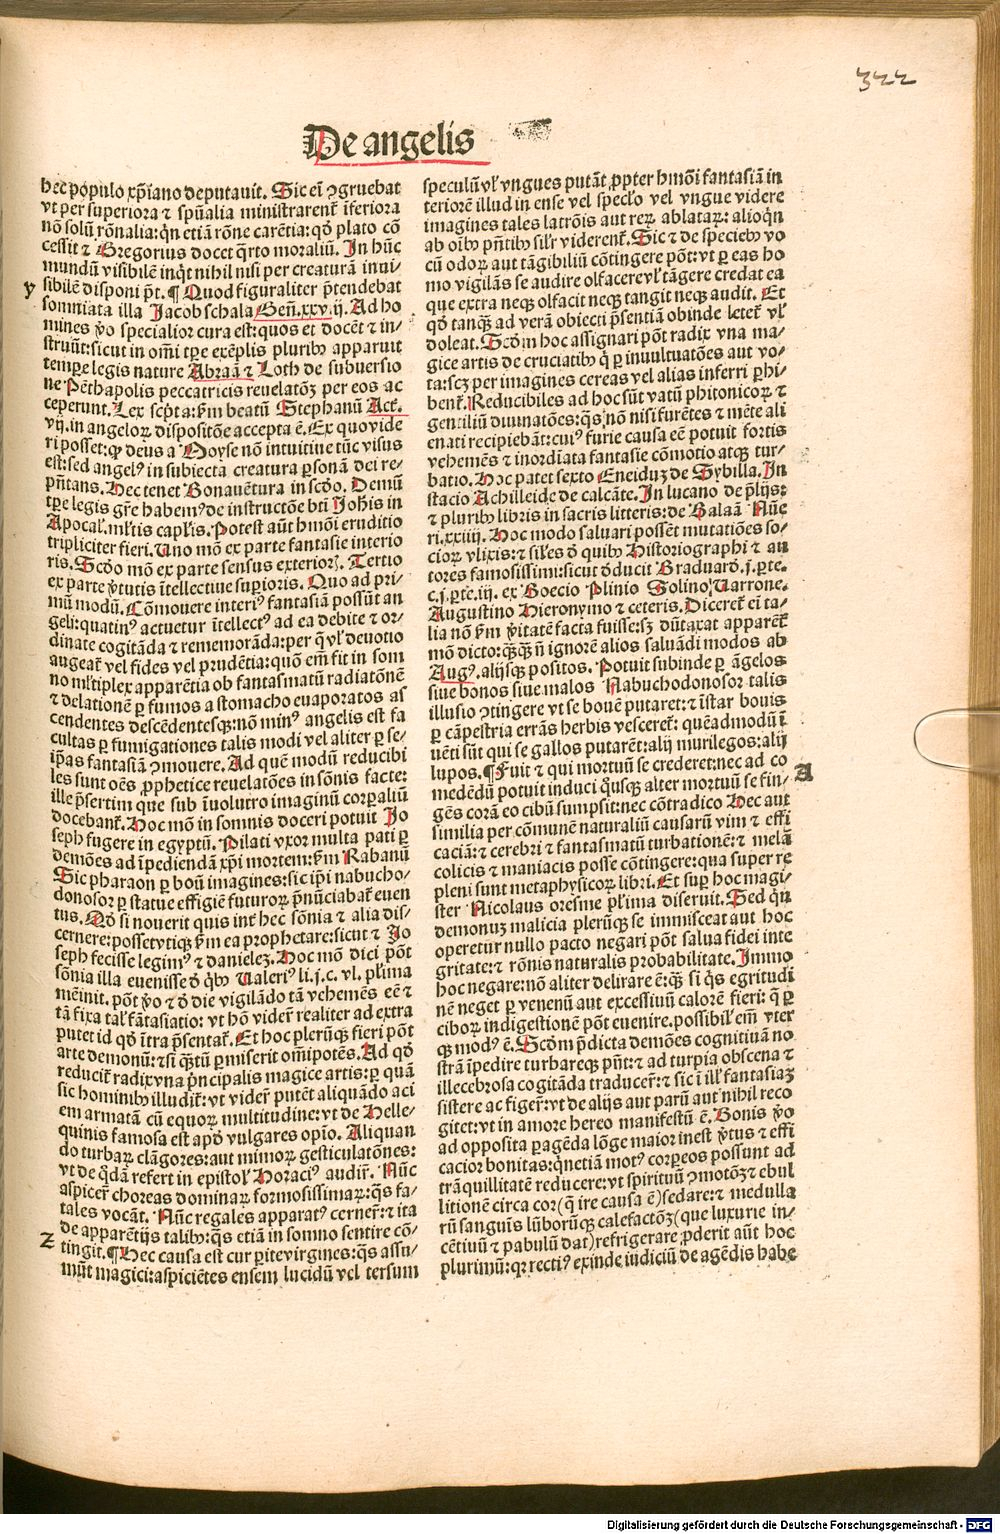 322
De angelis
hec populo xp̃iano deputauit. Sic eĩ ꝯgruebat
vt per superiora ⁊ spũalia ministrarent᷑ ĩferiora
nõ solũ rõnalia: q̃n etiã rõne carẽtia: qđ plato cõ
cessit ⁊ Gregorius docet q̃rto moraliũ. In hũc
mundũ visibilẽ inq̃t nihil nisi per creaturã inui⸗
sibilẽ disponi p̃t. ¶ Quod figuraliter p̃tendebat
y
somniata illa Jacob schala Geñ.xxv.ij. Ad ho
mines ṽo specialior cura est: quos et docẽt ⁊ in⸗
struũt: sicut in om̃i tp̃e exẽplis pluribꝰ apparuit
tempore legis nature Abraã ⁊ Loth de subuersio
ne Pẽthapolis peccatricis reuelatõꝫ per eos ac
ceperunt. Lex scp̃ta: ẜm beatũ Stephanũ Act̃.
vij. in angeloꝝ dispositõe accepta ẽ. Ex quo vide
ri posset: ꝙ deus a Moyse nõ intuitiue tũc visus
est: sed angelꝰ in subiecta creatura ꝑsonã dei re⸗
p̃ñtans. Hec tenet Bonauẽtura in scđo. Demũ
tp̃e legis gr̃e habemꝰ de instructõe bt̃i Joħis in
Apocal᷑. ml̃tis capl̃is. Potest aũt hmõi eruditio
tripliciter fieri. Uno mõ ex parte fantasie interio
ris. Scđo mõ ex parte sensus exterioꝝ. Tertio
ex parte ṽtutis ĩtellectiue superioris. Quo ad pri⸗
mũ modũ. Cõmouere interiꝰ fantasiã possũt an
geli: quatinꝰ actuetur ĩtellectꝰ ad ea debite ⁊ or⸗
dinate cogitãda ⁊ rememorãda: per q̃ vl̃ deuotio
augeat᷑ vel fides vel prudẽtia: quõ em̃ fit in som
no ml̃tiplex apparẽtia ob fantasmatũ radiatõnẽ
⁊ delationẽ ꝑ fumos a stomacho euaporatos as
cendentes descẽdentesqꝫ: nõ minꝰ angelis est fa
cultas ꝑ fumigationes talis modi vel aliter ꝑ se⸗
ip̃as fantasiã ꝯmouere. Ad quẽ modũ reducibi
les sunt oẽs ꝓphetice reuelatões in sõnis facte:
ille p̃sertim que sub ĩuolutro imaginũ corꝑaliũ
docebant᷑. Hoc mõ in somnis doceri potuit Jo
seph fugere in egyptũ. Pilati vxor multa pati ꝑ
demões ad ĩpediendã xp̃i mortem: ẜm Rabanũ
Sic pharaon ꝑ boũ imagines: sic ip̃i nabucho⸗
donosor ꝑ statue effigiẽ futuroꝝ p̃nũciabat᷑ euen
tus. Qđ si nouerit quis int᷑ hec sõnia ⁊ alia dis⸗
cernere: posset vtiqꝫ ẜm ea prophetare: sicut ⁊ Jo
seph fecisse legimꝰ ⁊ danieleꝫ. Hoc mõ dici põt
sõnia illa euenisse đ q̃bꝰ Ualeriꝰ li.j.c.vl. pl̃ima
mẽinit. põt ṽo ⁊ đ die vigilãdo tã vehemẽs eẽ ⁊
tã fixa tal᷑ fãtasiatio: vt hõ vider᷑ realiter ad extra
putet id qđ ĩtra p̃sentat᷑. Et hoc plerũqꝫ fieri põt
arte demonũ: ⁊ si q̃tũ ꝑmiserit om̃ipotẽs. Ad qđ
reducit᷑ radix vna p̃ncipalis magice artis: ꝑ quã
sic hominibꝰ illudit᷑: vt vider᷑ putẽt aliquãdo aci
em armatã cũ equoꝝ multitudine: vt de Helle⸗
quinis famosa est apđ vulgares opĩo. Aliquan
do turbaꝝ clãgores: aut mimoꝝ gesticulatões:
vt de q̃dã refert in epistol᷑ Horaciꝰ audir᷑. Nũc
aspicer᷑ choreas dominaꝝ formosissimaꝝ: q̃s fa⸗
tales vocãt. Nũc regales apparatꝰ cerner᷑: ⁊ ita
de apparẽtijs talibꝰ: q̃s etiã in somno sentire cõ⸗
z
tingit. ¶ Hec causa est cur ꝑite virgines: q̃s assu⸗
mũt magici: aspiciẽtes ensem lucidũ vel tersum
speculũ vl̃ vngues putãt ꝓpter hmõi fantasiã in
teriorẽ illud in ense vel speclo vel vngue videre
imagines tales latrõis aut reꝝ ablataꝝ: alioq̃n
ab oĩbꝰ p̃ñtibꝰ sil̃r viderent᷑. Sic ⁊ de speciebꝰ vo
cũ odoꝝ aut tãgibiliũ cõtingere põt: vt ꝑ eas ho
mo vigilãs se audire olfacere vl̃ tãgere credat ea
que extra neqꝫ olfacit neqꝫ tangit neqꝫ audit. Et
qđ tanq̃ꝫ ad verã obiecti p̃sentiã obinde letet᷑ vl̃
doleat. Scđm hoc assignari põt radix vna ma⸗
gice artis de cruciatibꝰ q̃ ꝑ inuultuatões aut vo⸗
ta: scꝫ per imagines cereas vel alias inferri ꝑhi⸗
bent᷑. Reducibiles ad hoc sũt vatũ phitonicoꝝ ⁊
gentiliũ diuinatões: q̃s nõ nisi furẽtes ⁊ mẽte ali
enati recipiebãt: cuiꝰ furie causa eẽ potuit fortis
vehemẽs ⁊ inordiata fantasie cõmotio atqꝫ tur⸗
batio. Hoc patet sexto Eneiduꝫ de Sybilla. In
stacio Achilleide de calcãte. In lucano de p̃lijs:
⁊ pluribꝰ libris in sacris litteris: de Balaã Nũe
ri.xxiiij. Hoc modo saluari possẽt mutatiões so⸗
cioꝝ vlixis: ⁊ sil̃es đ quibꝰ Historiographi ⁊ au
tores famosissimi: sicut đducit Braduarđ.j.ꝑte.
c.j.ꝑte.iij. ex Boecio Plinio Solino Uarrone
Augustino Hieronymo ⁊ ceteris. Diceret᷑ eĩ ta⸗
lia nõ ẜm ṽitatẽ facta fuisse: sꝫ dũtaxat apparẽt᷑
mõ dicto: q̃ꝫq̃ꝫ ñ ignorẽ alios saluãdi modos ab
Augꝰ. alijsqꝫ positos. Potuit subinde ꝑ ãgelos
siue bonos siue malos Nabuchodonosor talis
illusio ꝯtingere vt se bouẽ putaret: ⁊ ĩstar bouis
ꝑ cãpestria errãs herbis vesceret᷑: quẽadmodũ ĩ
uẽti sũt qui se gallos putarẽt: alij murilegos: alij
lupos. ¶ Fuit ⁊ qui mortuũ se crederet: nec ad co
A
medẽdũ potuit induci q̃usqꝫ alter mortuũ se fin⸗
gẽs corã eo cibũ sumpsit: nec cõtradico Hec aut
similia per cõmunẽ naturaliũ causarũ vim ⁊ effi
caciã: ⁊ cerebri ⁊ fantasmatũ turbationẽ: ⁊ melã
colicis ⁊ maniacis posse cõtingere: qua super re
pleni sunt metaphysicoꝝ libri. Et suꝑ hoc magi⸗
ster Nicolaus oresme pl̃ima diseruit. Sed q̃n
demonuꝫ malicia plerũqꝫ se immisceat aut hoc
operetur nullo pacto negari põt salua fidei inte
gritate: ⁊ rõnis naturalis probabilitate. Immo
hoc negare: nõ aliter delirare ẽ: q̃ꝫ si q̃s egritudi
nẽ neget ꝑ venenũ aut excessiuũ calorẽ fieri: q̃ ꝑ
ciboꝝ indigestionẽ põt euenire. possibil᷑ em̃ vter
qꝫ modꝰ ẽ. Scđm p̃dicta demões cognitiuã no
strã ĩpedire turbareqꝫ p̃ñt: ⁊ ad turpia obscena ⁊
illecebrosa cogitãda traducer᷑: ⁊ sic ĩ ill᷑ fantasiaꝫ
sistere ac figer᷑: vt de alijs aut parũ aut nihil reco
gitet: vt in amore hereo manifestũ ẽ. Bonis ṽo
ad opposita ꝑagẽda lõge maior inest ṽtus ⁊ effi
cacior bonitas: q̃netiã motꝰ corꝑeos possunt ad
trãquillitatẽ reducere: vt spirituũ ꝯmotõꝫ ⁊ ebul
litionẽ circa cor (q̃ ire causa ẽ) sedare: ⁊ medulla
rũ sanguĩs lũborũqꝫ calefactõꝫ (que luxurie in⸗
cẽtiuũ ⁊ pabulũ dat) refrigerare. ꝓderit aũt hoc
plurimũ: qꝛ rectiꝰ exinde iudiciũ de agẽdis habe
Digitalisierung gefördert durch die Deutsche Forschungsgemeinschaft - DFG